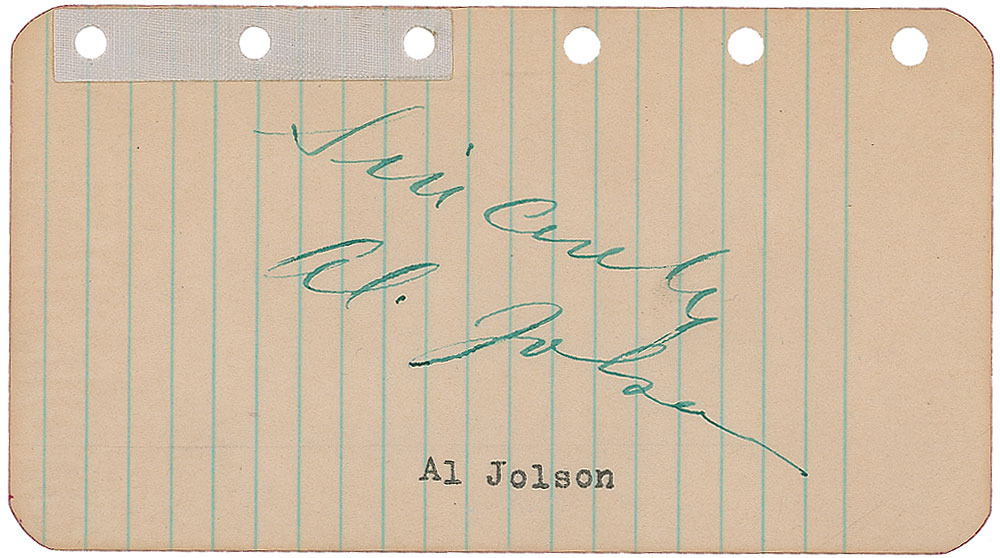 Sincerely
Al. Jolson
Al Jolson